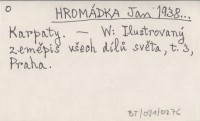 O
HROMÁDKA Jan 1938...
Karpaty. — W: Ilustrovaný
zeměpis všech dílů světa, t. 3,
Praha.
BJ/021/0276